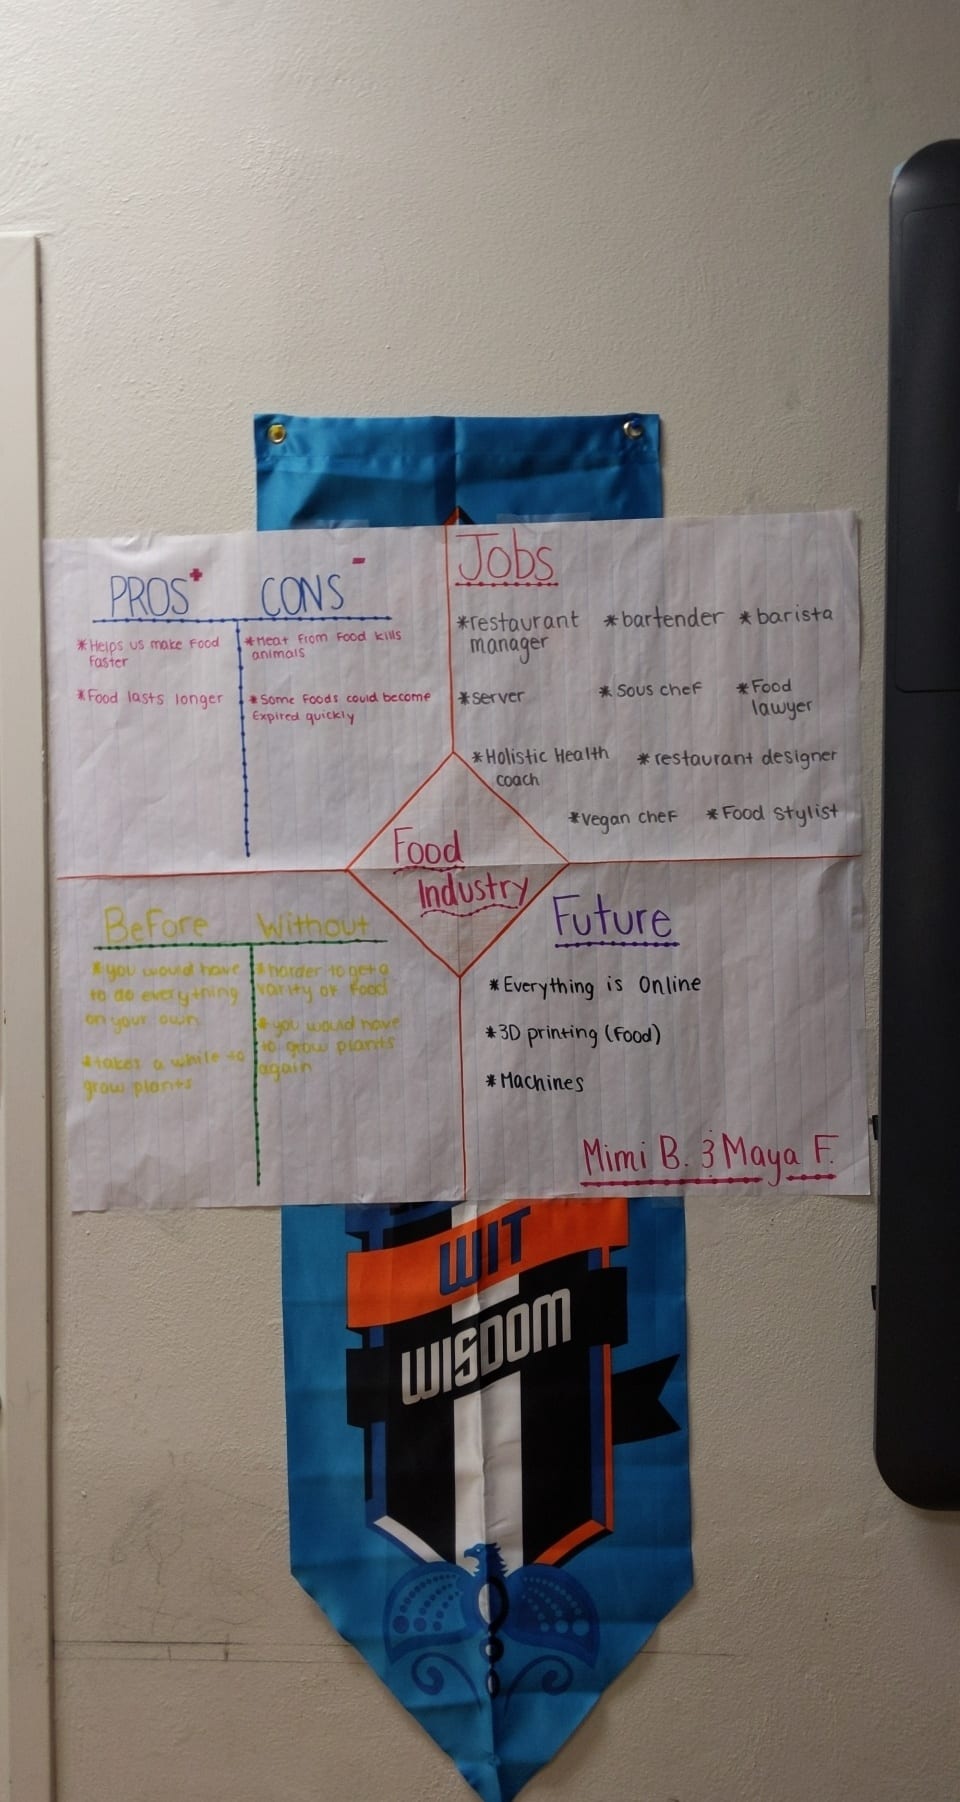 PROS+
*Helps us make Food
Faster
*Food lasts longer
CONS -
*Meat From Food kills
animals
*Some Foods could become
Expired quickly
Jobs
*restaurant
manager
*bartender
*barista
*server
*Sous cheF
*Food
lawyer
*Holistic Health
coach
*restaurant designer
*vegan cheF
*Food stylist
Food
Industry
BeFore
*you would have
to do everything
on your own
*takes a while to
grow plants
Without
*harder to get a
varity oF Food
*you would have
to grow plants
again
Future
*Everything is Online
*3D printing (Food)
*Machines
Mimi B. & Maya F.
WIT
WISDOM